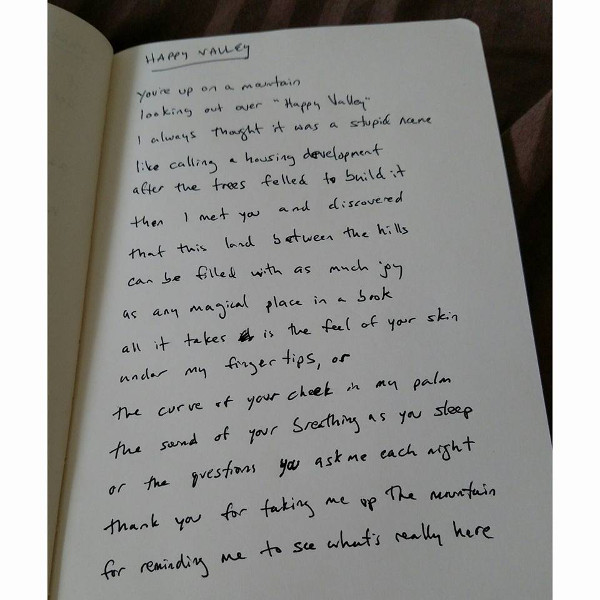 HAPPY VALLEY
you're up on a mountain
looking out over "Happy Valley"
I always thought it was a stupid name
like calling a housing development
after the trees felled to build it
then I met you and discovered
that this land between the hills
can be filled with as much joy
as any magical place in a book
all it takes is the feel of your skin
under my fingertips, or
the curve of your cheek in my palm
the sound of your breathing as you sleep
or the questions you ask me each night
thank you for taking me up the mountain
for reminding me to see what's really here